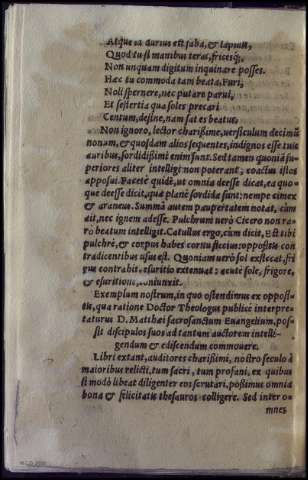 Atque id durius est faba, & lapillis,
Quod tu si manibus teras, fricesq́;,
Non unquam digitum inquinare posses.
Hæc tu commoda tam beata, Furi,
Noli spernere, nec putare parui,
Et sestertia quæ soles precari
Centum, desine, nam sat es beatus.
Non ignoro, lector charißime, uersiculum decimū
nonum, & quosdam alios sequentes, indignos esse tuis
auribus, sordidißimi enim sunt. Sed tamen quoniā su-
periores aliter intelligi non poterant, coactus istos
apposui. Facetè quidē, ut omnia deesse dicat, ea quo-
que deesse dicit, quæ planè sordida sunt: nempe cimex
& araneus. Summā autem paupertatem notat, cùm
ait, nec ignem adesse. Pulchrum uerò Cicero non ra-
rò beatum intelligit. Catullus ergo, cùm dicit, Est tibi
pulchrè, & corpus habes cornu siccius: oppositis con
tradicentibus usus est. Quoniam uerò sol exsiccat, fri
gus contrahit, esuritio extenuat: acute sole, frigore,
& esuritione, coniunxit.
Exemplum nostrum, in quo ostendimus ex opposi-
tis, qua ratione Doctor Theologus publicè interpre-
taturus D. Matthæi sacrosanctum Euangelium, pos-
sit discipulos suos ad tantum auctorem intelli-
gendum & ediscendum commouere.
Libri extant, auditores charißimi, nostro seculo à
maioribus relicti, tum sacri, tum profani, ex quibus
si modò libeat diligenter eos scrutari, poßimus omnia
bona & felicitatis thesauros colligere. Sed inter o-
mnes